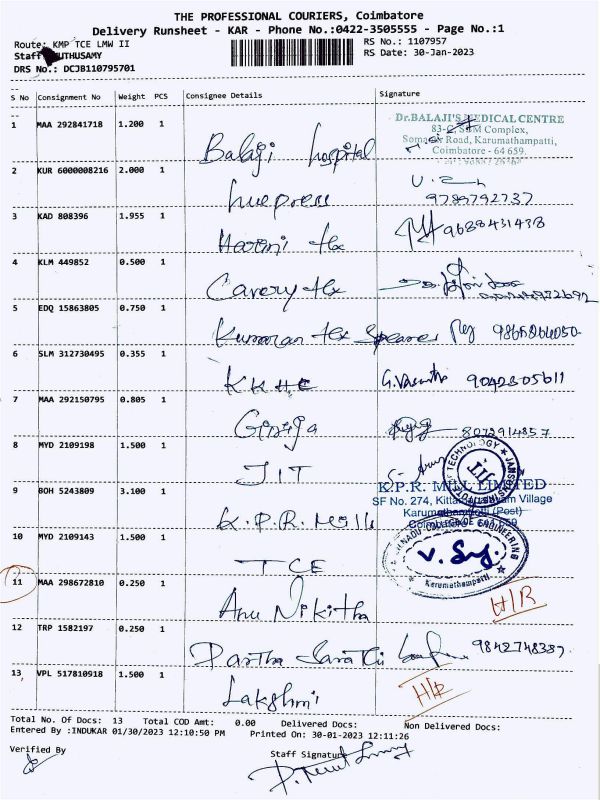 THE PROFESSIONAL COURIERS, Coimbatore
Delivery Runsheet - KAR - Phone No.:0422-3505555 - Page No.:1
Route: KMP TCE LMW II
RS No.: 1107957
Staff MUTHUSAMY
RS Date: 30-Jan-2023
DRS No.: DCJB110795701
S No Consignment No Weight PCS Consignee Details Signature
1 MAA 292841718 1.200 1 Balaji hospital
Dr.BALAJI'S MEDICAL CENTRE
83-C, SBM Complex,
Road, Karumathampatti,
Coimbatore - 64 659.
2 KUR 6000008216 2.000 1
9789792737
3 KAD 808396 1.955 1 Harini tex 9688431438
4 KLM 449852 0.500 1 Cavery tex
5 EDQ 15863805 0.750 1 Kumaran tex
6 SLM 312730495 0.355 1 KKHC G.Vasanth 9042805611
7 MAA 292150795 0.805 1 Girija 8072914857
8 MYD 2109198 1.500 1 JIT
TECHNOLOGY JIT
9 BOH 5243809 3.100 1 K.P.R. Mills
K.P.R. MILL LIMITED
SF No. 274, Village
(Post)
10 MYD 2109143 1.500 1 TCE
COLLEGE OF ENGINEERING
Karumathampatti
11 MAA 298672810 0.250 1 Anu Nikitha
12 TRP 1582197 0.250 1 Partha Sarathi 9842748387
13 VPL 517810918 1.500 1 Lakshmi
Total No. Of Docs: 13 Total COD Amt: 0.00 Delivered Docs: Non Delivered Docs:
Entered By :INDUKAR 01/30/2023 12:10:50 PM Printed On: 30-01-2023 12:11:26
Verified By
Staff Signature